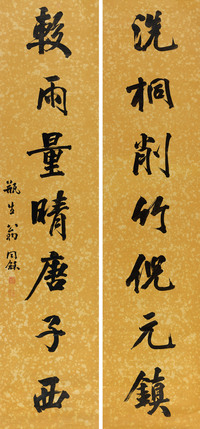 洗桐削竹倪元鎮
較雨量晴唐子西
瓶生翁同龢